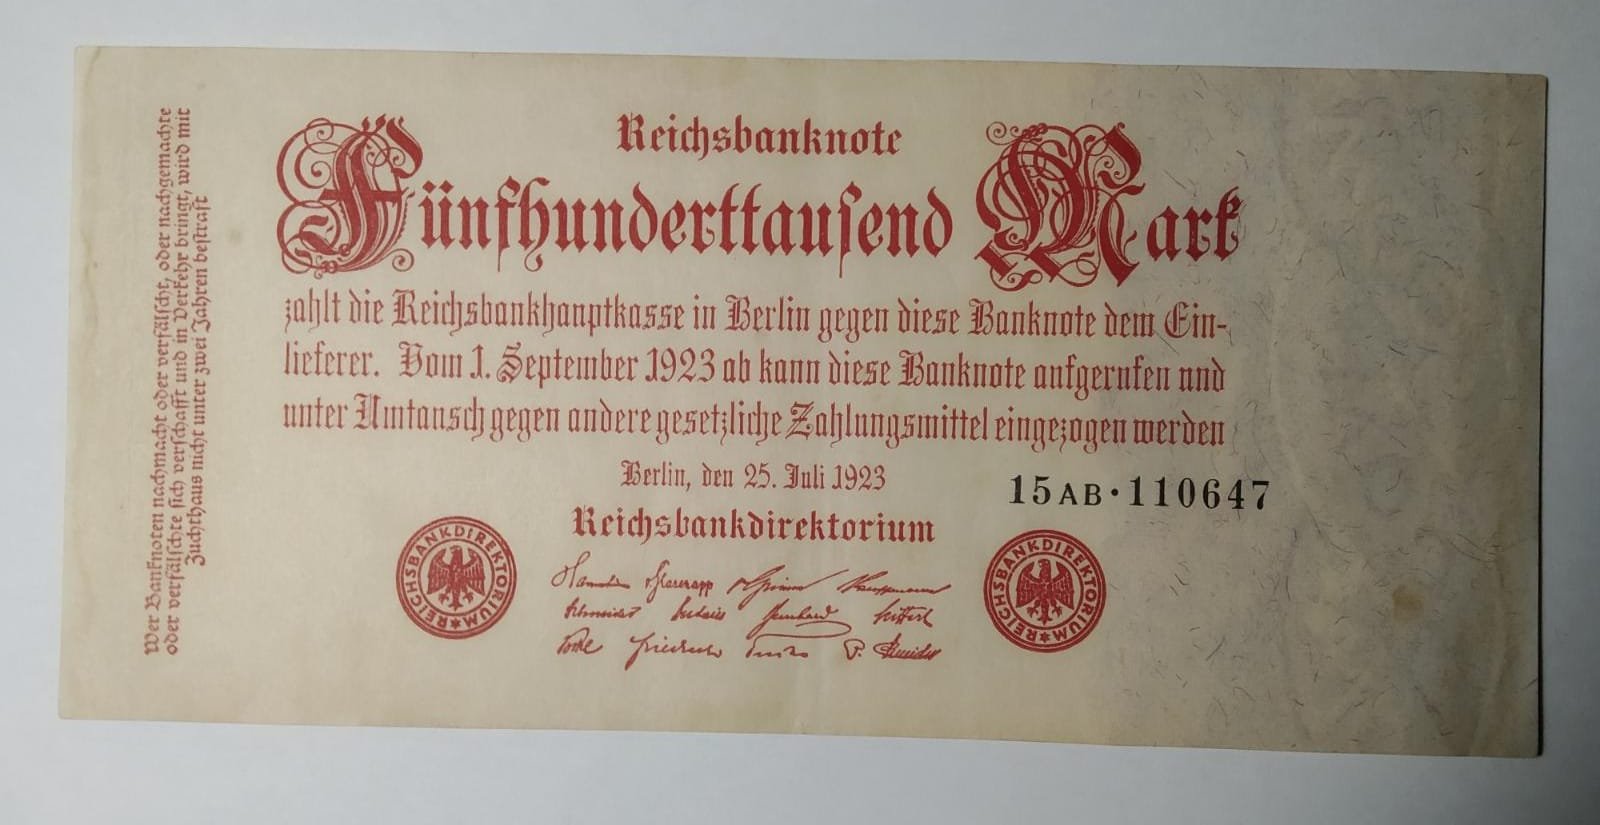 Reichsbanknote
Fünfhunderttausend Mark
zahlt die Reichsbankhauptkasse in Berlin gegen diese Banknote dem Ein-
lieferer. Vom 1. September 1923 ab kann diese Banknote aufgerufen und
unter Umtausch gegen andere gesetzliche Zahlungsmittel eingezogen werden
Berlin, den 25. Juli 1923
15AB·110647
Reichsbankdirektorium
REICHSBANKDIREKTORIUM
REICHSBANKDIREKTORIUM
Kauffmann
Schneider
P. Schneider
Wer Banknoten nachmacht oder verfälscht, oder nachgemachte
oder verfälschte sich verschafft und in Verkehr bringt, wird mit
Zuchthaus nicht unter zwei Jahren bestraft